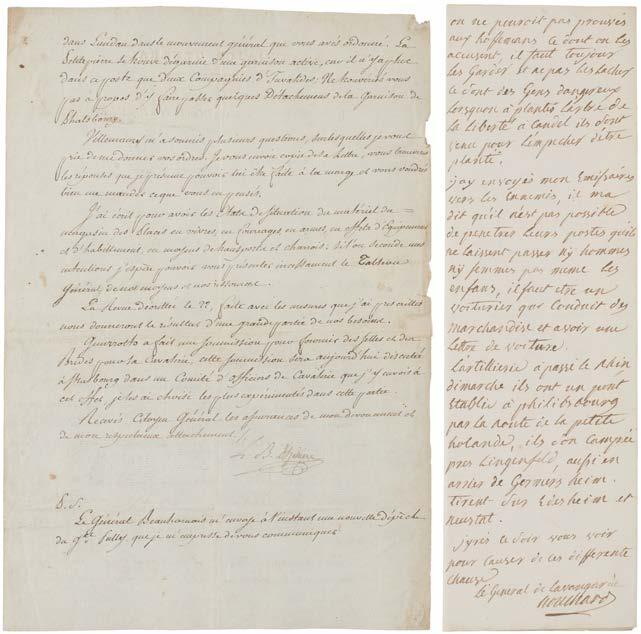 dans Landau dans le mouvement général que vous avés ordonné. La
Petite pierre se trouve dégarnie d'une garnison active, car il n'y a plus
dans ce poste que Deux Compagnies d'Invalides. Ne trouverés vous
pas a propos d'y faire passer quelques Détachemens de la Garnison de
Phalsbourg.
Villemanzy m'a soumis plusieurs questions, sur lesquelles je vous
prie de me donner vos ordres. Je vous envoie copie de sa lettre, vous trouverés
les réponses que je présume pouvoir lui être faite à la marge et vous voudrés
bien me mander ce que vous en pensés.
J'ai écrit pour avoir les Etats de situation du matériel du
magasin des places en vivres, en fourrages en armes, en effets d'Equipement
et d'habillement, en moyens de transports et charrois; si l'on seconde mes
intentions j'espère pouvoir vous présenter incessamment le Tableau
Général de nos moyens et nos ressources.
La Revue décrettée le 22, faite avec les mesures que j'ai prescrittes
nous donneront le résultat d'une grande partie de nos besoins.
a fait une soumission pour fournir des selles et des
Brides pour la Cavalerie, cette soumission sera aujourd'hui discutée
à Strasbourg dans un Comité d'officiers de Cavalerie que j'y envoie à
cet effet, je les ai choisis les plus expérimentés dans cette partie.
Recevés Citoyen Général les assurances de mon dévouement et
de mon respectueux attachement
P. S.
Le Général Beauharnais m'envoye à l'instant une nouvelle dépêche
du Gal Pully que je m'empresse de vous communiquer
on ne pouroit pas prouvés
aux hoffemans ce dont on les
accusent, il faut toujour
les Garder et ne pas les lacher
ce sont des Gens dangreux
lorsquon a plantés larbre de
la liberté a Candel ils sont
venu pour lempecher detre
planté.
jay envoyés mon Emissaires
vers les Ennemis, il ma
dit quil nest pas possible
de penetres leurs postes quils
ne laissent passer ny hommes
ny femmes pas meme les
enfans, il faut etre un
voiturier qui conduit des
marchandise et avoir un
lettre de voiture.
Lartillierie à passé le Rhin
dimarche ils ont un pont
stablie a philisbourg
par la Route de la petite
holande, ils son campée
pres Lingenfeld, aussi en
arrier de Germersheim.
tirent sur et
neustat.
jyrés ce soir vous voir
pour causer de ces differente
chause
Le General de Lavangarde
houchard